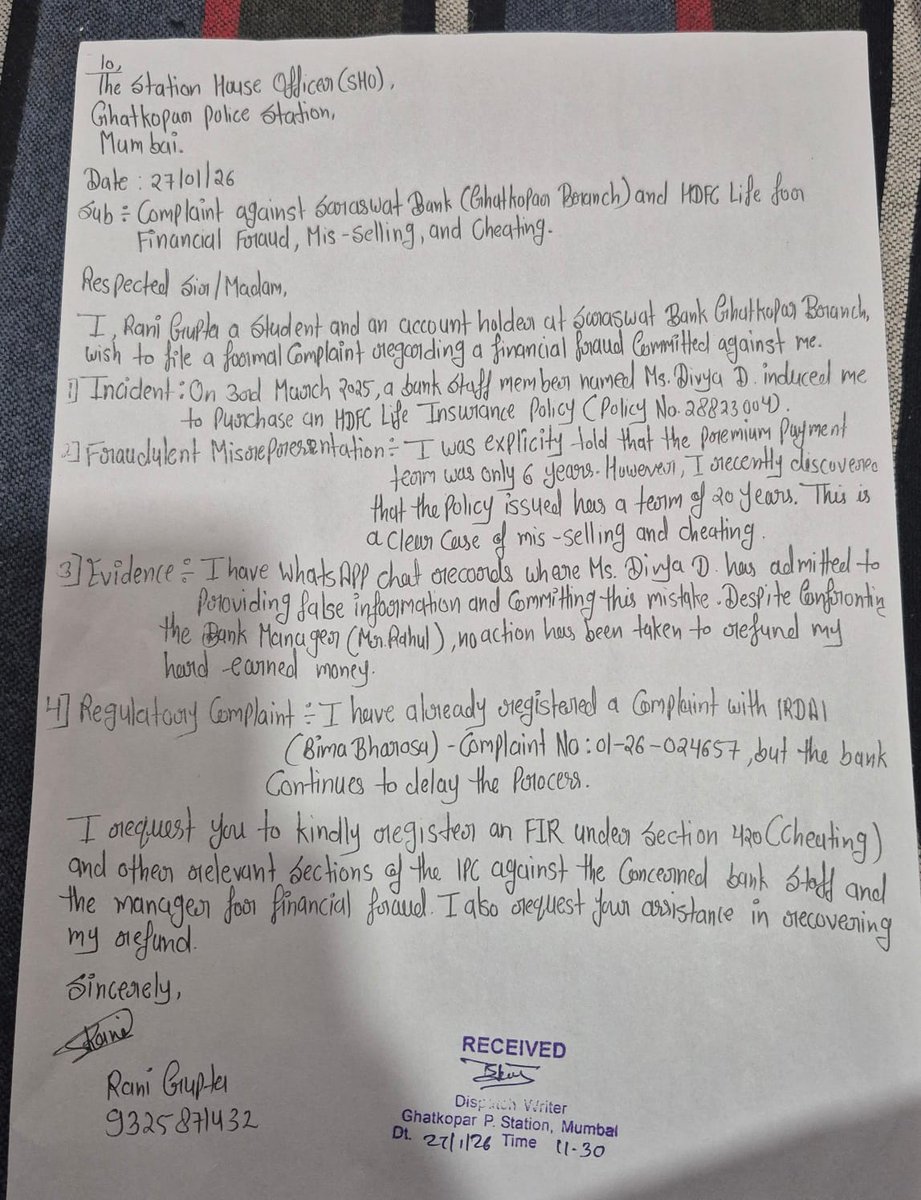 To,
The Station House Officer (SHO),
Ghatkopar Police Station,
Mumbai.
Date : 27/01/26
Sub ÷ Complaint against Saraswat Bank (Ghatkopar Branch) and HDFC Life for
Financial Fraud, Mis-Selling, and Cheating.
Respected Sir/Madam,
I, Rani Gupta a Student and an account holder at Saraswat Bank Ghatkopar Branch,
wish to file a formal Complaint regarding a financial fraud Committed against me.
1] Incident : On 3rd March 2025, a bank staff member named Ms. Divya D. induced me
to Purchase an HDFC Life Insurance Policy (Policy No. 28823004).
2] Fraudulent Misrepresentation ÷ I was explicity told that the Premium Payment
term was only 6 years. However, I recently discovered
that the Policy issued has a term of 20 years. This is
a Clear Case of mis-selling and cheating.
3] Evidence ÷ I have WhatsApp chat records where Ms. Divya D. has admitted to
Providing false information and Committing this mistake. Despite Confrontin
the Bank Manager (Mr. Rahul), no action has been taken to refund my
hard-earned money.
4] Regulatory Complaint ÷ I have already registered a Complaint with IRDAI
(Bima Bharosa) - Complaint No : 01-26-024657, but the bank
Continues to delay the Process.
I request you to kindly register an FIR under Section 420 (Cheating)
and other relevant Sections of the IPC against the Concerned bank Staff and
the manager for financial fraud. I also request your assistance in recovering
my refund.
Sincerely,
Rani
Rani Gupta
9325871432
RECEIVED
Dispatch Writer
Ghatkopar P. Station, Mumbai
Dt. 27/1/26 Time 11-30